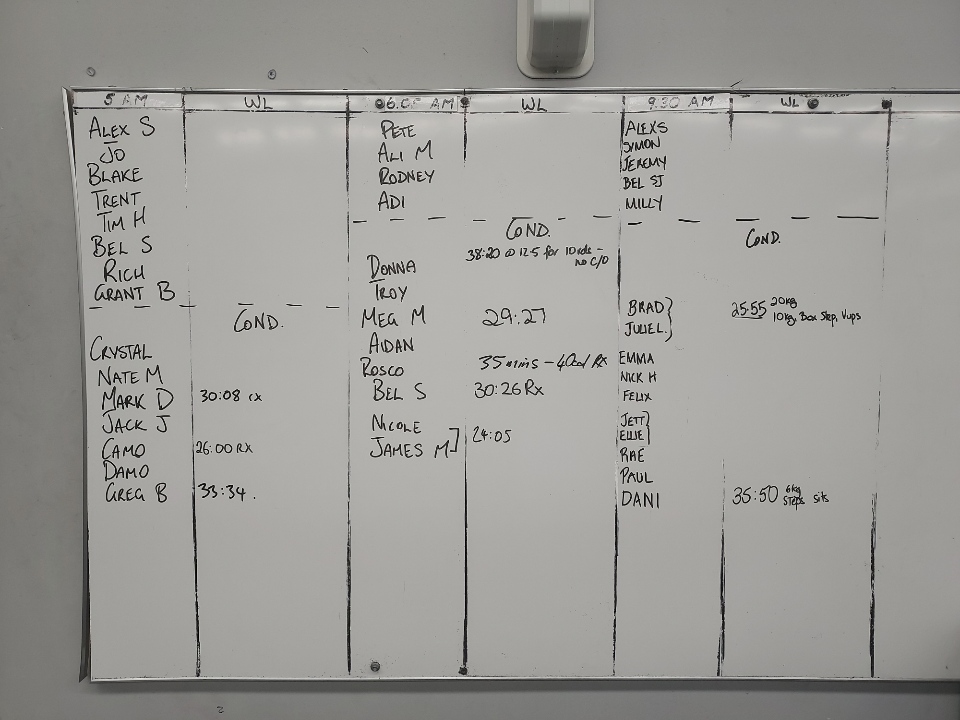 5 AM WL
ALEX S
JO
BLAKE
TRENT
TIM H
BEL S
RICH
GRANT B
COND.
CRYSTAL
NATE M
MARK D 30:08 rx
JACK J
CAMO 26:00 RX
DAMO
GREG B 33:34.
06.05 AM WL
PETE
ALI M
RODNEY
ADI
COND.
38:20 @ 12.5 for 10 rds -
no C/O
DONNA
TROY
MEG M 29:27
AIDAN
ROSCO 35 mins - 40cal Rx
BEL S 30:26 Rx
NICOLE
JAMES M 24:05
9.30 AM WL
ALEX S
SYMON
JEREMY
BEL SJ
MILLY
COND.
BRAD 25:55 20kg
JULIE L. 10kg, Box Step, Vups
EMMA
NICK H
FELIX
JETT
ELLIE
RAE
PAUL
DANI 35:50 6kg
STEPS sits